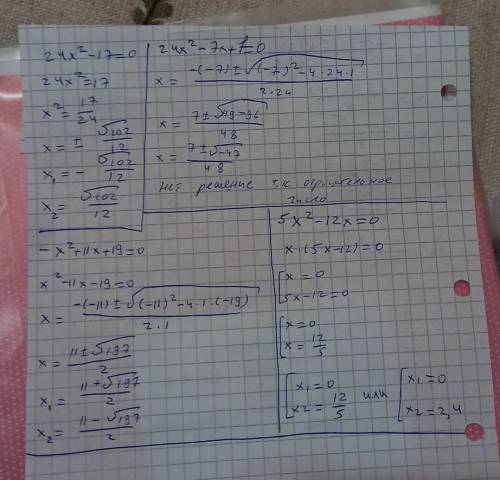 24x²-17=0
24x²=17
x²=17/24
x=±√102/12
x₁=-√102/12
x₂=√102/12
24x²-7x+1=0
x=(-(-7)±√((-7)²-4·24·1))/(2·24)
x=(7±√(49-96))/48
x=(7±√-47)/48
Нет решение т.к отрицательное
число
-x²+11x+19=0
x²-11x-19=0
x=(-(-11)±√((-11)²-4·1·(-19)))/(2·1)
x=(11±√197)/2
x₁=(11+√197)/2
x₂=(11-√197)/2
5x²-12x=0
x·(5x-12)=0
[x=0
5x-12=0
[x=0
x=12/5
[x₁=0
x2=12/5 или [x₁=0
x₂=2,4